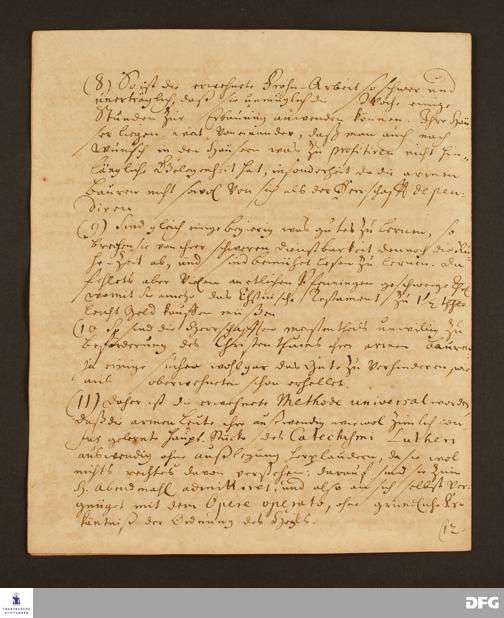 (8) So ist die erwehnete Frohn-Arbeit so schwer und
unerträglich, daß sie unmüglich die Woche einige
Stunden zur Erbauung anwenden können. Ihre Häu
ser liegen weit von einander, daß man auch nach
Wunsch in den Häusern was zu profitiren nicht hin-
längliche Gelegenheit hat, insonderheit da die armen
Bauren nicht sowol von sich als der Herrschafft depen-
diren
(9) Sind gleich einige begierig was gutes zu lernen, so
brechen sie von ihrer schweren Dienstbarkeit dennoch die Ru
he-Zeit ab, und sind bemühet lesen zu lernen.
fehlets aber Vielen an etlichen Pfenningen geschweige
womit sie das Ehstnische Testament zu 1 1/2 thlr
leicht Geld kauffen müßen
(10 sind die Herrschafften meistentheils unwillig zu
Beförderung des Christenthums ihrer armen Bauren
ja einige suchen wohl gar das Gute zu verhindern, wie
aus oberwehneten schon erhellet.
(11) Daher ist die erwehnete Methode universal worden,
daß die armen Leute ihre außwendig wiewol zimlich con
fus gelernte Haupt-Stücke des Catechismi Lutheri
auswendig ohne Außlegung herplaudern, da sie wol
nichts rechtes davon verstehen; darauf sind sie zum
H. Abendmahl admittiret, und also an sich selbst ver
gnüget mit dem Opere operato, ohne gründliche Er-
käntniß der Ordnung des Heyls.
(12
FRANCKESCHE
STIFTUNGEN
DFG